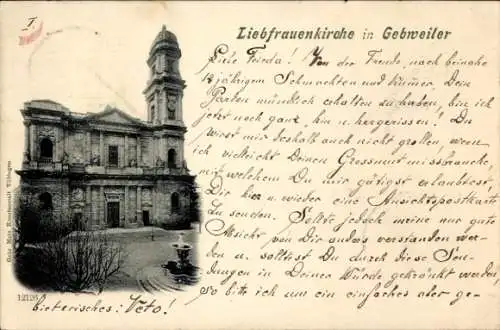 I.
Liebfrauenkirche in Gebweiler
Liebe Frieda! Von der Freude, nach beinahe
jährigem Schmachten und Kummer Dein
Pardon mündlich erhalten zu haben, bin ich
jetzt noch ganz hin u. hergerissen! Du
wirst mir deshalb auch nicht grollen, wenn
ich vielleicht Deinen Grossmut missbrauche,
welchem Du mir gütigst erlaubtest,
Dir hie u. wieder eine Ansichtspostkarte
zu senden. Sollte jedoch meine nur gute
Absicht von Dir anders verstanden wer-
den u. solltest Du durch diese Sen-
dungen in Deiner Würde gekränkt werden,
so bitte ich um ein einfaches aber ge-
bieterisches: Veto!
Gebr. Metz Kunstanstalt Tübingen
12125